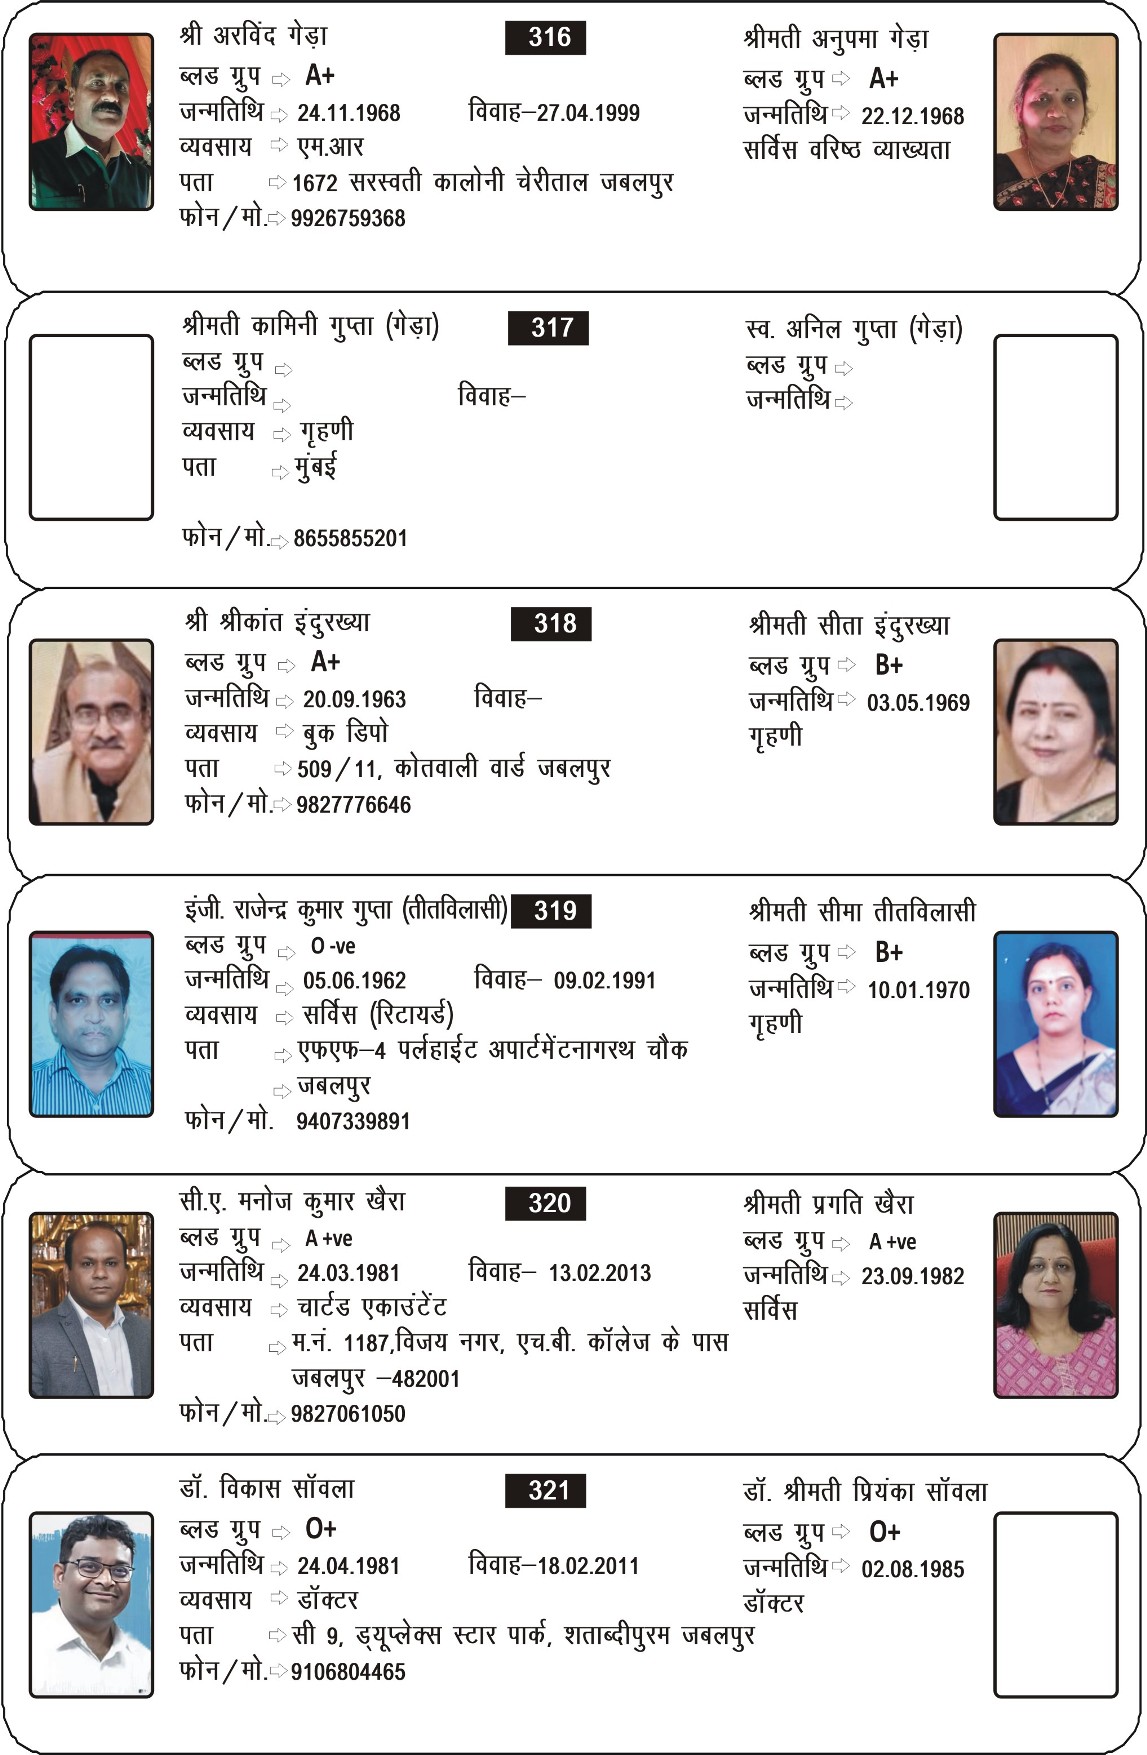 श्री अरविंद गेड़ा 316 श्रीमती अनुपमा गेड़ा
ब्लड ग्रुप A+ ब्लड ग्रुप A+
जन्मतिथि 24.11.1968 विवाह–27.04.1999 जन्मतिथि 22.12.1968
व्यवसाय एम.आर सर्विस वरिष्ठ व्याख्यता
पता 1672 सरस्वती कालोनी चेरीताल जबलपुर
फोन/मो. 9926759368
श्रीमती कामिनी गुप्ता (गेड़ा) 317 स्व. अनिल गुप्ता (गेड़ा)
ब्लड ग्रुप ब्लड ग्रुप
जन्मतिथि विवाह– जन्मतिथि
व्यवसाय गृहणी
पता मुंबई
फोन/मो. 8655855201
श्री श्रीकांत इंदुरख्या 318 श्रीमती सीता इंदुरख्या
ब्लड ग्रुप A+ ब्लड ग्रुप B+
जन्मतिथि 20.09.1963 विवाह– जन्मतिथि 03.05.1969
व्यवसाय बुक डिपो गृहणी
पता 509/11, कोतवाली वार्ड जबलपुर
फोन/मो. 9827776646
इंजी. राजेन्द्र कुमार गुप्ता (तीतविलासी) 319 श्रीमती सीमा तीतविलासी
ब्लड ग्रुप O -ve ब्लड ग्रुप B+
जन्मतिथि 05.06.1962 विवाह– 09.02.1991 जन्मतिथि 10.01.1970
व्यवसाय सर्विस (रिटायर्ड) गृहणी
पता एफएफ–4 पर्लहाईट अपार्टमेंटनागरथ चौक
जबलपुर
फोन/मो. 9407339891
सी.ए. मनोज कुमार खैरा 320 श्रीमती प्रगति खैरा
ब्लड ग्रुप A +ve ब्लड ग्रुप A +ve
जन्मतिथि 24.03.1981 विवाह– 13.02.2013 जन्मतिथि 23.09.1982
व्यवसाय चार्टड एकाउंटेंट सर्विस
पता म.नं. 1187,विजय नगर, एच.बी. कॉलेज के पास
जबलपुर –482001
फोन/मो. 9827061050
डॉ. विकास सॉवला 321 डॉ. श्रीमती प्रियंका सॉवला
ब्लड ग्रुप O+ ब्लड ग्रुप O+
जन्मतिथि 24.04.1981 विवाह–18.02.2011 जन्मतिथि 02.08.1985
व्यवसाय डॉक्टर डॉक्टर
पता सी 9, ड्यूप्लेक्स स्टार पार्क, शताब्दीपुरम जबलपुर
फोन/मो. 9106804465